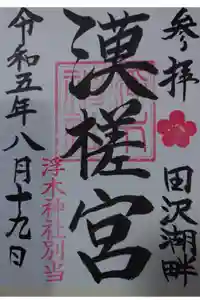 参拝
田沢湖畔
漢槎宮
浮木神社別当
令和五年八月十九日